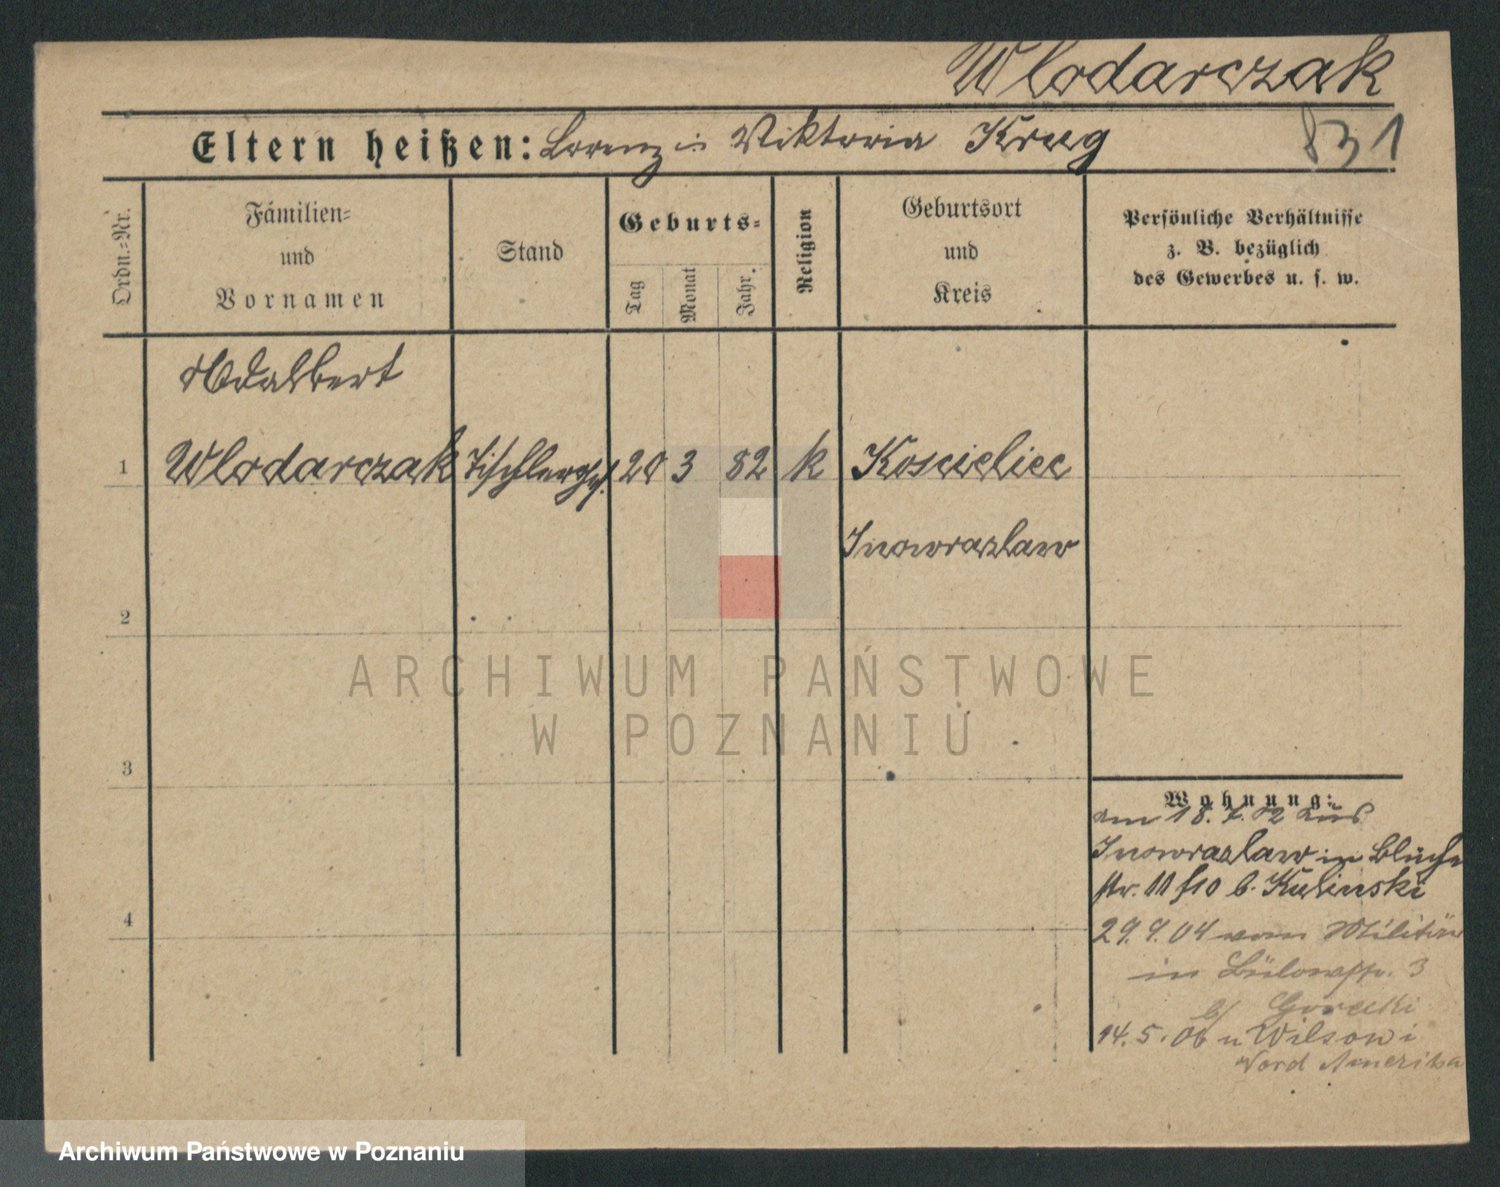 Wlodarczak
Eltern heißen: Lorenz u Viktoria Krug
831
Ordn.-Nr.
Familien-
und
Vornamen
Stand
Geburts-
Tag
Monat
Jahr.
Religion
Geburtsort
und
Kreis
Persönliche Verhältnisse
z. B. bezüglich
des Gewerbes u. s. w.
Adalbert
1 Wlodarczak Tischlerges. 20 3 82 k Koscieliec
Inowrazlaw
2
3
4
Wohnung:
am 18. 7. 02 aus
Inowrazlaw in Blüche
str. 11 b. Kulinski
29. 9. 04 vom Militär
in Bülowstr. 3
b/ Gorecki
14. 5. 06 n Wilson i
Nord Amerika
ARCHIWUM PAŃSTWOWE
W POZNANIU
Archiwum Państwowe w Poznaniu